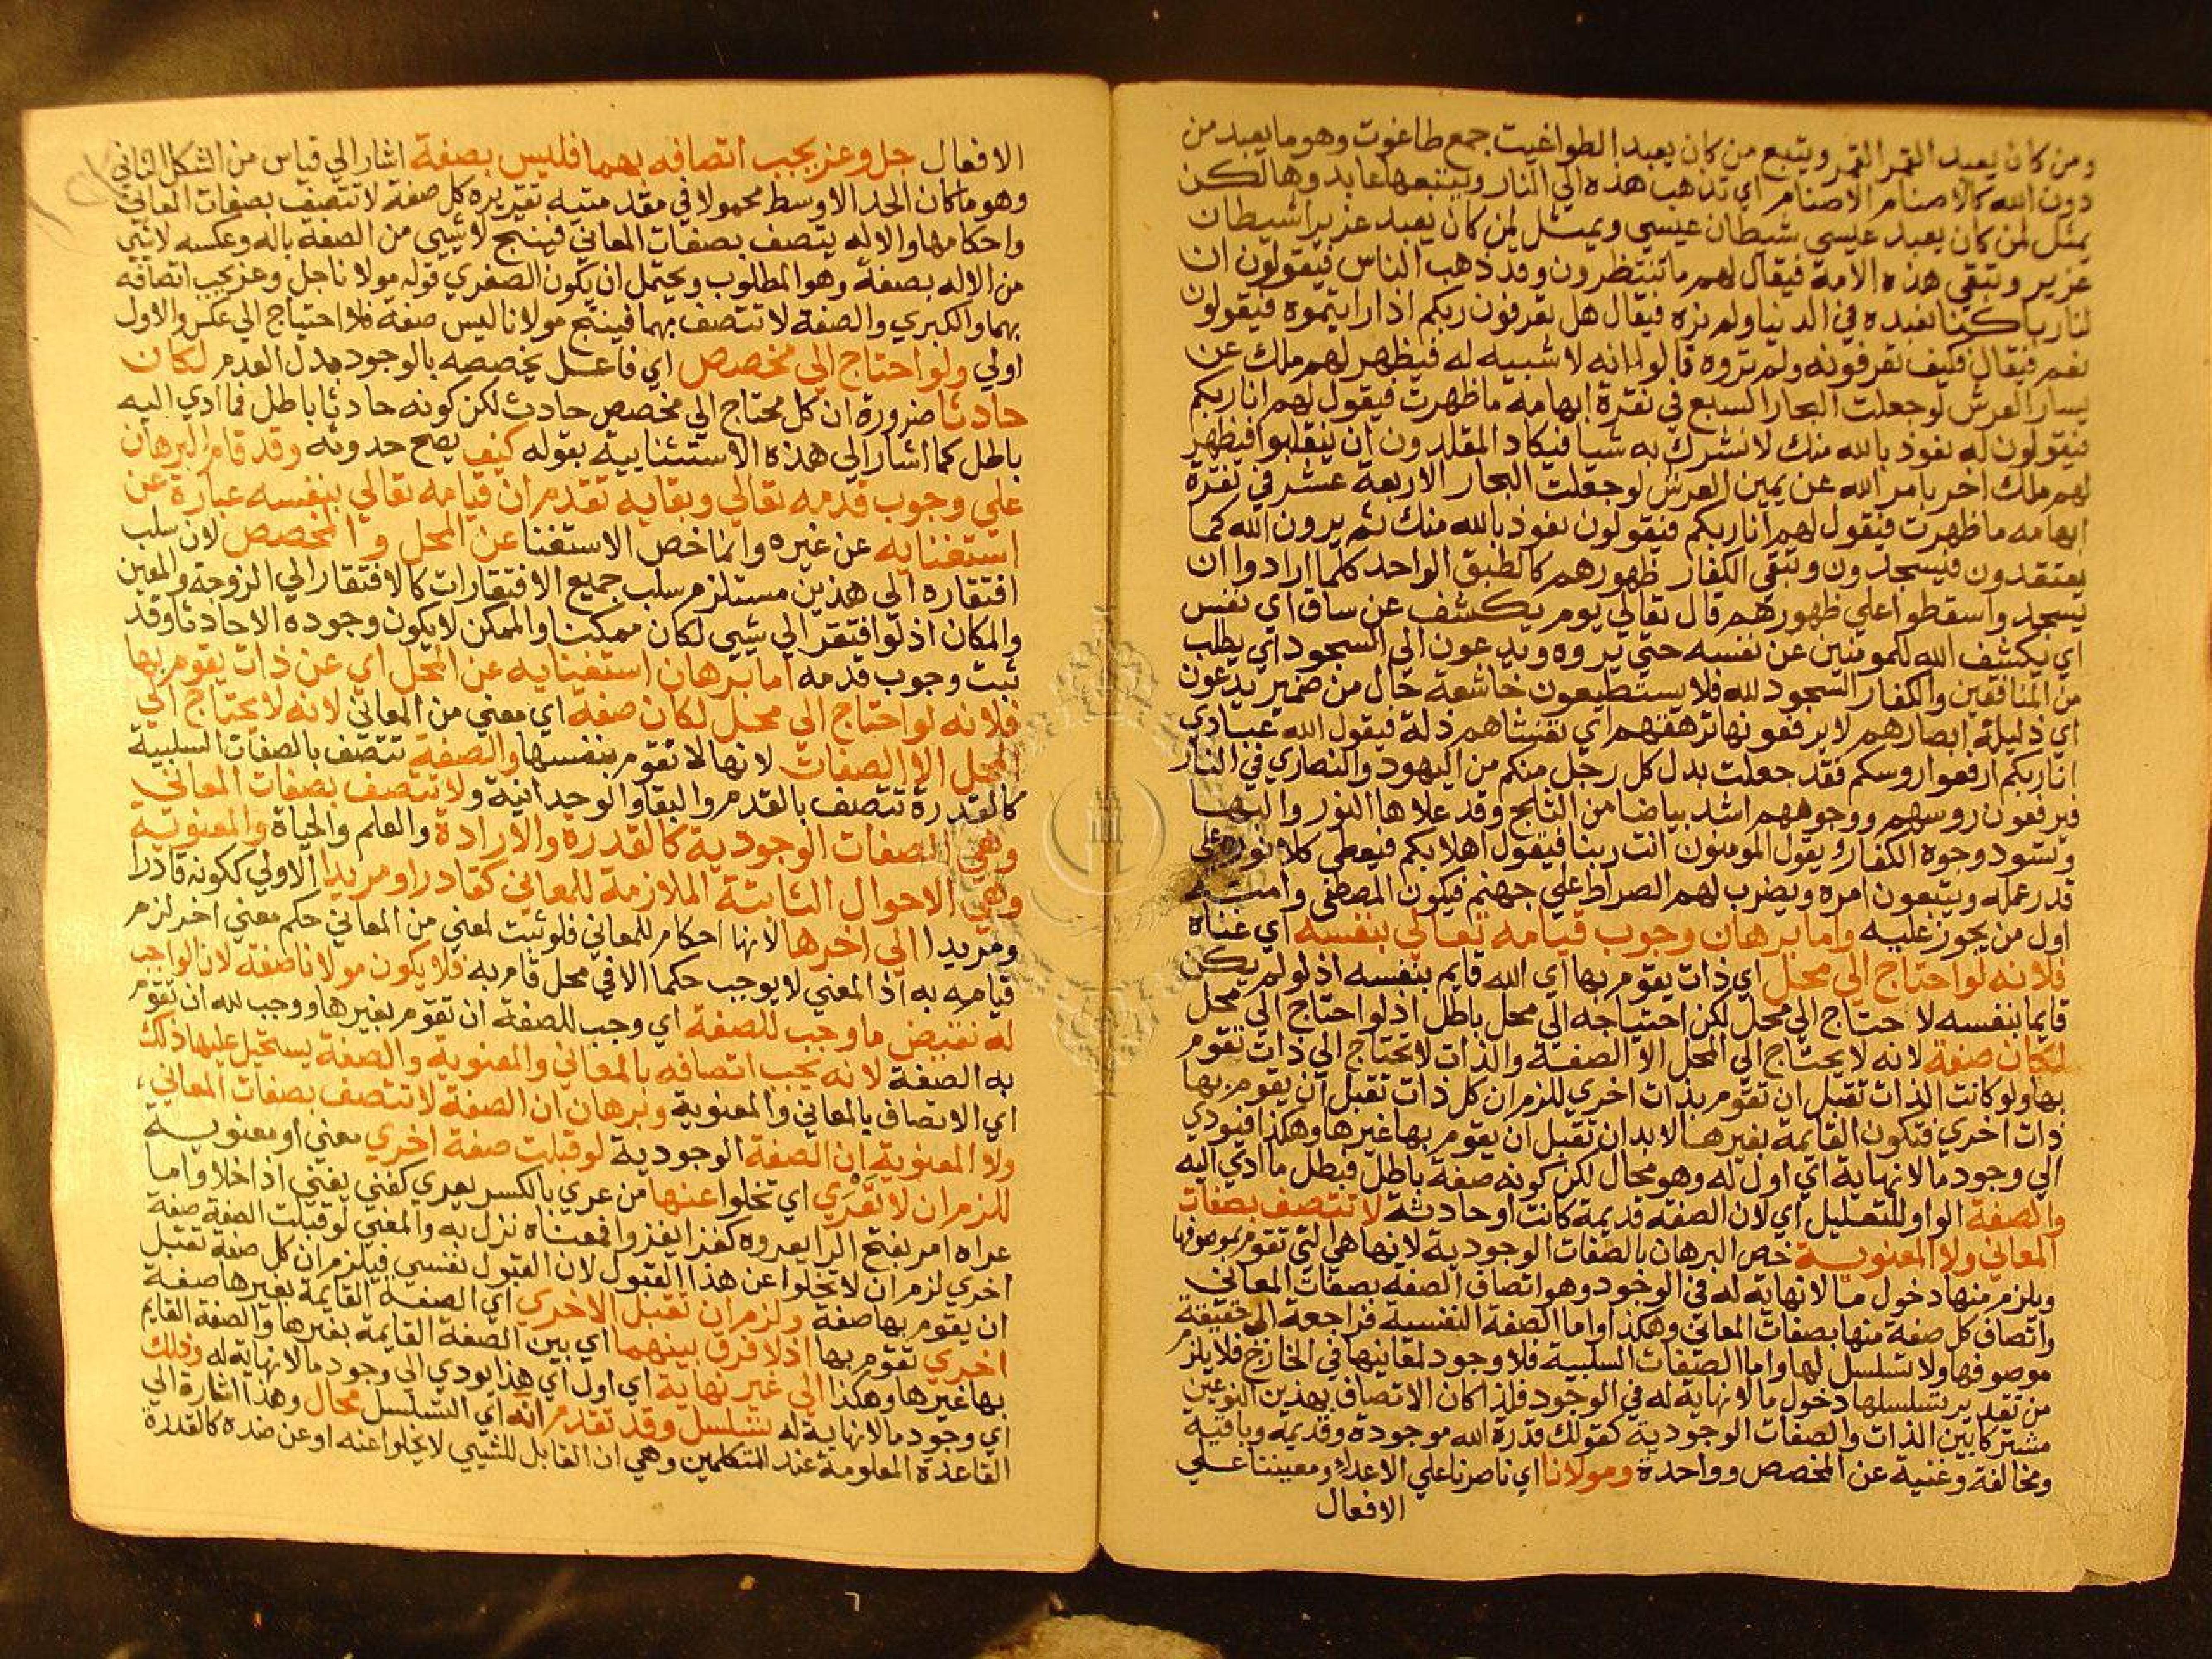 ومن كان يعبد القمر القمر ويتبع من كان يعبد الطواغيت جمع طاغوت وهو ما يعبد من
دون الله كالاصنام الاصنام اي تذهب هذه الي النار ويتبعها عابدوها لكن
يمثل لمن كان يعبد عيسي شيطان عيسي ويمثل لمن كان يعبد عزيرا شيطان
عزير وتبقي هذه الامة فيقال لهم ما تنتظرون وقد ذهب الناس فيقولون ان
لنا ربا كنا نعبده في الدنيا ولم نره فيقال هل تعرفون ربكم اذا رايتموه فيقولون
نعم فيقال فكيف تعرفونه ولم تروه قالوا انه لا شبيه له فيظهر لهم ملك عن
يسار العرش لو جعلت البحار السبع في نقرة ابهامه ما ظهرت فيقول لهم انا ربكم
فيقولون له نعوذ بالله منك لا نشرك به شيا فيكاد المقلدون ان ينقلبوا فيظهر
لهم ملك اخر بامر الله عن يمين العرش لو جعلت البحار الاربعة عشر في نقرة
ابهامه ما ظهرت فيقول لهم انا ربكم فيقولون نعوذ بالله منك ثم يرون الله كما
يعتقدون فيسجدون وتبقي الكفار ظهورهم كالطبق الواحد كلما ارادوا ان
يسجدوا سقطوا علي ظهورهم قال تعالي يوم يكشف عن ساق اي نفس
اي يكشف الله للمومنين عن نفسه حتي يروه ويدعون الي السجود اي يطلب
من المنافقين والكفار السجود لله فلا يستطيعون خاشعة حال من ضمير يدعون
اي ذليلة ابصارهم لا يرفعونها ترهقهم اي تغشاهم ذلة فيقول الله عبادي
انا ربكم ارفعوا روسكم فقد جعلت بدل كل رجل منكم من اليهود والنصاري في النار
فيرفعون روسهم ووجوههم اشد بياضا من الثلج وقد علاها النور والبها
وتسود وجوه الكفار ويقول المومنون انت ربنا فيقول اهلا بكم فيعطي كلا نوره علي
قدر عمله ويتبعون امره ويضرب لهم الصراط علي جهنم فيكون المصطفي وامته
اول من يجوز عليه واما برهان وجوب قيامه تعالي بنفسه اي غناه
فلانه لو احتاج الي محل اي ذات يقوم بها اي الله قايم بنفسه اذ لو لم يكن
قايما بنفسه لا حتاج الي محل لكن احتياجه الي محل باطل اذ لو احتاج الي محل
لكان صفة لانه لا يحتاج الي المحل الا الصفة والذات لا تحتاج الي ذات تقوم
بها ولو كانت الذات تقبل ان تقوم بذات اخري للزم ان كل ذات تقبل ان يقوم بها
ذات اخري فتكون القايمة بغيرها لا بد ان تقبل ان يقوم بها غيرها وهكذا فيودي
الي وجود ما لا نهاية اي اول له وهو محال لكن كونه صفة باطل فبطل ما ادي اليه
والصفة الواو للتعليل اي لان الصفة قديمة كانت او حادثة لا تتصف بصفات
المعاني ولا المعنوية خص البرهان بالصفات الوجودية لانها هي التي تقوم بموصوفها
ويلزم منها دخول ما لا نهاية له في الوجود وهو اتصاف الصفة بصفات المعاني
واتصاف كل صفة منها بصفات المعاني وهكذا واما الصفة النفسية فراجعة الي حقيقة
موصوفها ولا تسلسل لها واما الصفات السلبية فلا وجود لمعانيها في الخارج فلا يلزم
من تقدير تسلسلها دخول ما لا نهاية له في الوجود فلذا كان الاتصاف بهذين النوعين
مشتركا بين الذات والصفات الوجودية كقولك قدرة الله موجودة وقديمة وباقية
ومخالفة وغنية عن المخصص وواحدة ومولانا اي ناصرنا علي الاعداء ومعيننا علي
الافعال
الافعال جل وعز يجب اتصافه بهما فليس بصفة اشار الي قياس من الشكل الثاني
وهو ما كان الحد الاوسط محمولا في مقدمتيه تقريره كل صفة لا تتصف بصفات المعاني
واحكامها والاله يتصف بصفات المعاني فينتج لا شيي من الصفة باله وعكسه لا شيي
من الاله بصفة وهو المطلوب ويحتمل ان يكون الصغري قوله مولانا جل وعز يجب اتصافه
بهما والكبري والصفة لا تتصف بهما فينتج مولانا ليس صفة فلا احتياج الي عكس والاول
اولي ولو احتاج الي مخصص اي فاعل يخصصه بالوجود بدل العدم لكان
حادثا ضرورة ان كل محتاج الي مخصص حادث لكن كونه حادثا باطل فما ادي اليه
باطل كما اشار الي هذه الاستثنايية بقوله كيف يصح حدوثه وقد قام البرهان
علي وجوب قدمه تعالي وبقايه تقدم ان قيامه تعالي بنفسه عبارة عن
استغنايه عن غيره وانما خص الاستغنا عن المحل والمخصص لان سلب
افتقاره الي هذين مستلزم سلب جميع الافتقارات كالافتقار الي الزوجة والمعين
والمكان اذ لو افتقر الي شيي لكان ممكنا والممكن لا يكون وجوده الا حادثا وقد
ثبت وجوب قدمه اما برهان استغنايه عن المحل اي عن ذات يقوم بها
فلانه لو احتاج الي محل لكان صفة اي معني من المعاني لانه لا يحتاج الي
المحل الا الصفات لانها لا تقوم بنفسها والصفة تتصف بالصفات السلبية
كالقدرة تتصف بالقدم والبقا والوحدانية ولا تتصف بصفات المعاني
وهي الصفات الوجودية كالقدرة والارادة والعلم والحياة والمعنوية
وهي الاحوال الثابتة الملازمة للمعاني كقادرا ومريدا الاولي ككونه قادرا
ومريدا الي اخرها لانها احكام للمعاني فلو ثبت لمعني من المعاني حكم معني اخر لزم
قيامه به اذ المعني لا يوجب حكما الا في محل قام به فلا يكون مولانا صفة لان الواجب
له نقيض ما وجب للصفة اي وجب للصفة ان تقوم بغيرها ووجب لله ان تقوم
به الصفة لانه يجب اتصافه بالمعاني والمعنوية والصفة يستحيل عليها ذلك
اي الاتصاف بالمعاني والمعنوية وبرهان ان الصفة لا تتصف بصفات المعاني
ولا المعنوية ان الصفة الوجودية لو قبلت صفة اخري معني او معنوية
للزم ان لا تعرَي اي تخلوا عنها من عري بالكسر يعري كغني يغني اذا خلا واما
عراه امر بفتح الرا يعروه كغزا يغزوا فمعناه نزل به والمعني لو قبلت الصفة صفة
اخري لزم ان لا تخلوا عن هذا القبول لان القبول نفسي فيلزم ان كل صفة تقبل
ان يقوم بها صفة ولزم ان تقبل الاخري اي الصفة القايمة بغيرها صفة
اخري تقوم بها اذ لا فرق بينهما اي بين الصفة القايمة بغيرها والصفة القايم
بها غيرها وهكذا الي غير نهاية اي اول اي هذا يودي الي وجود ما لا نهاية له وذلك
اي وجود ما لا نهاية له تسلسل وقد تقدم انه اي التسلسل محال وهذا اشارة الي
القاعدة المعلومة عند المتكلمين وهي ان القابل للشيي لا يخلوا عنه او عن ضده كالقدرة